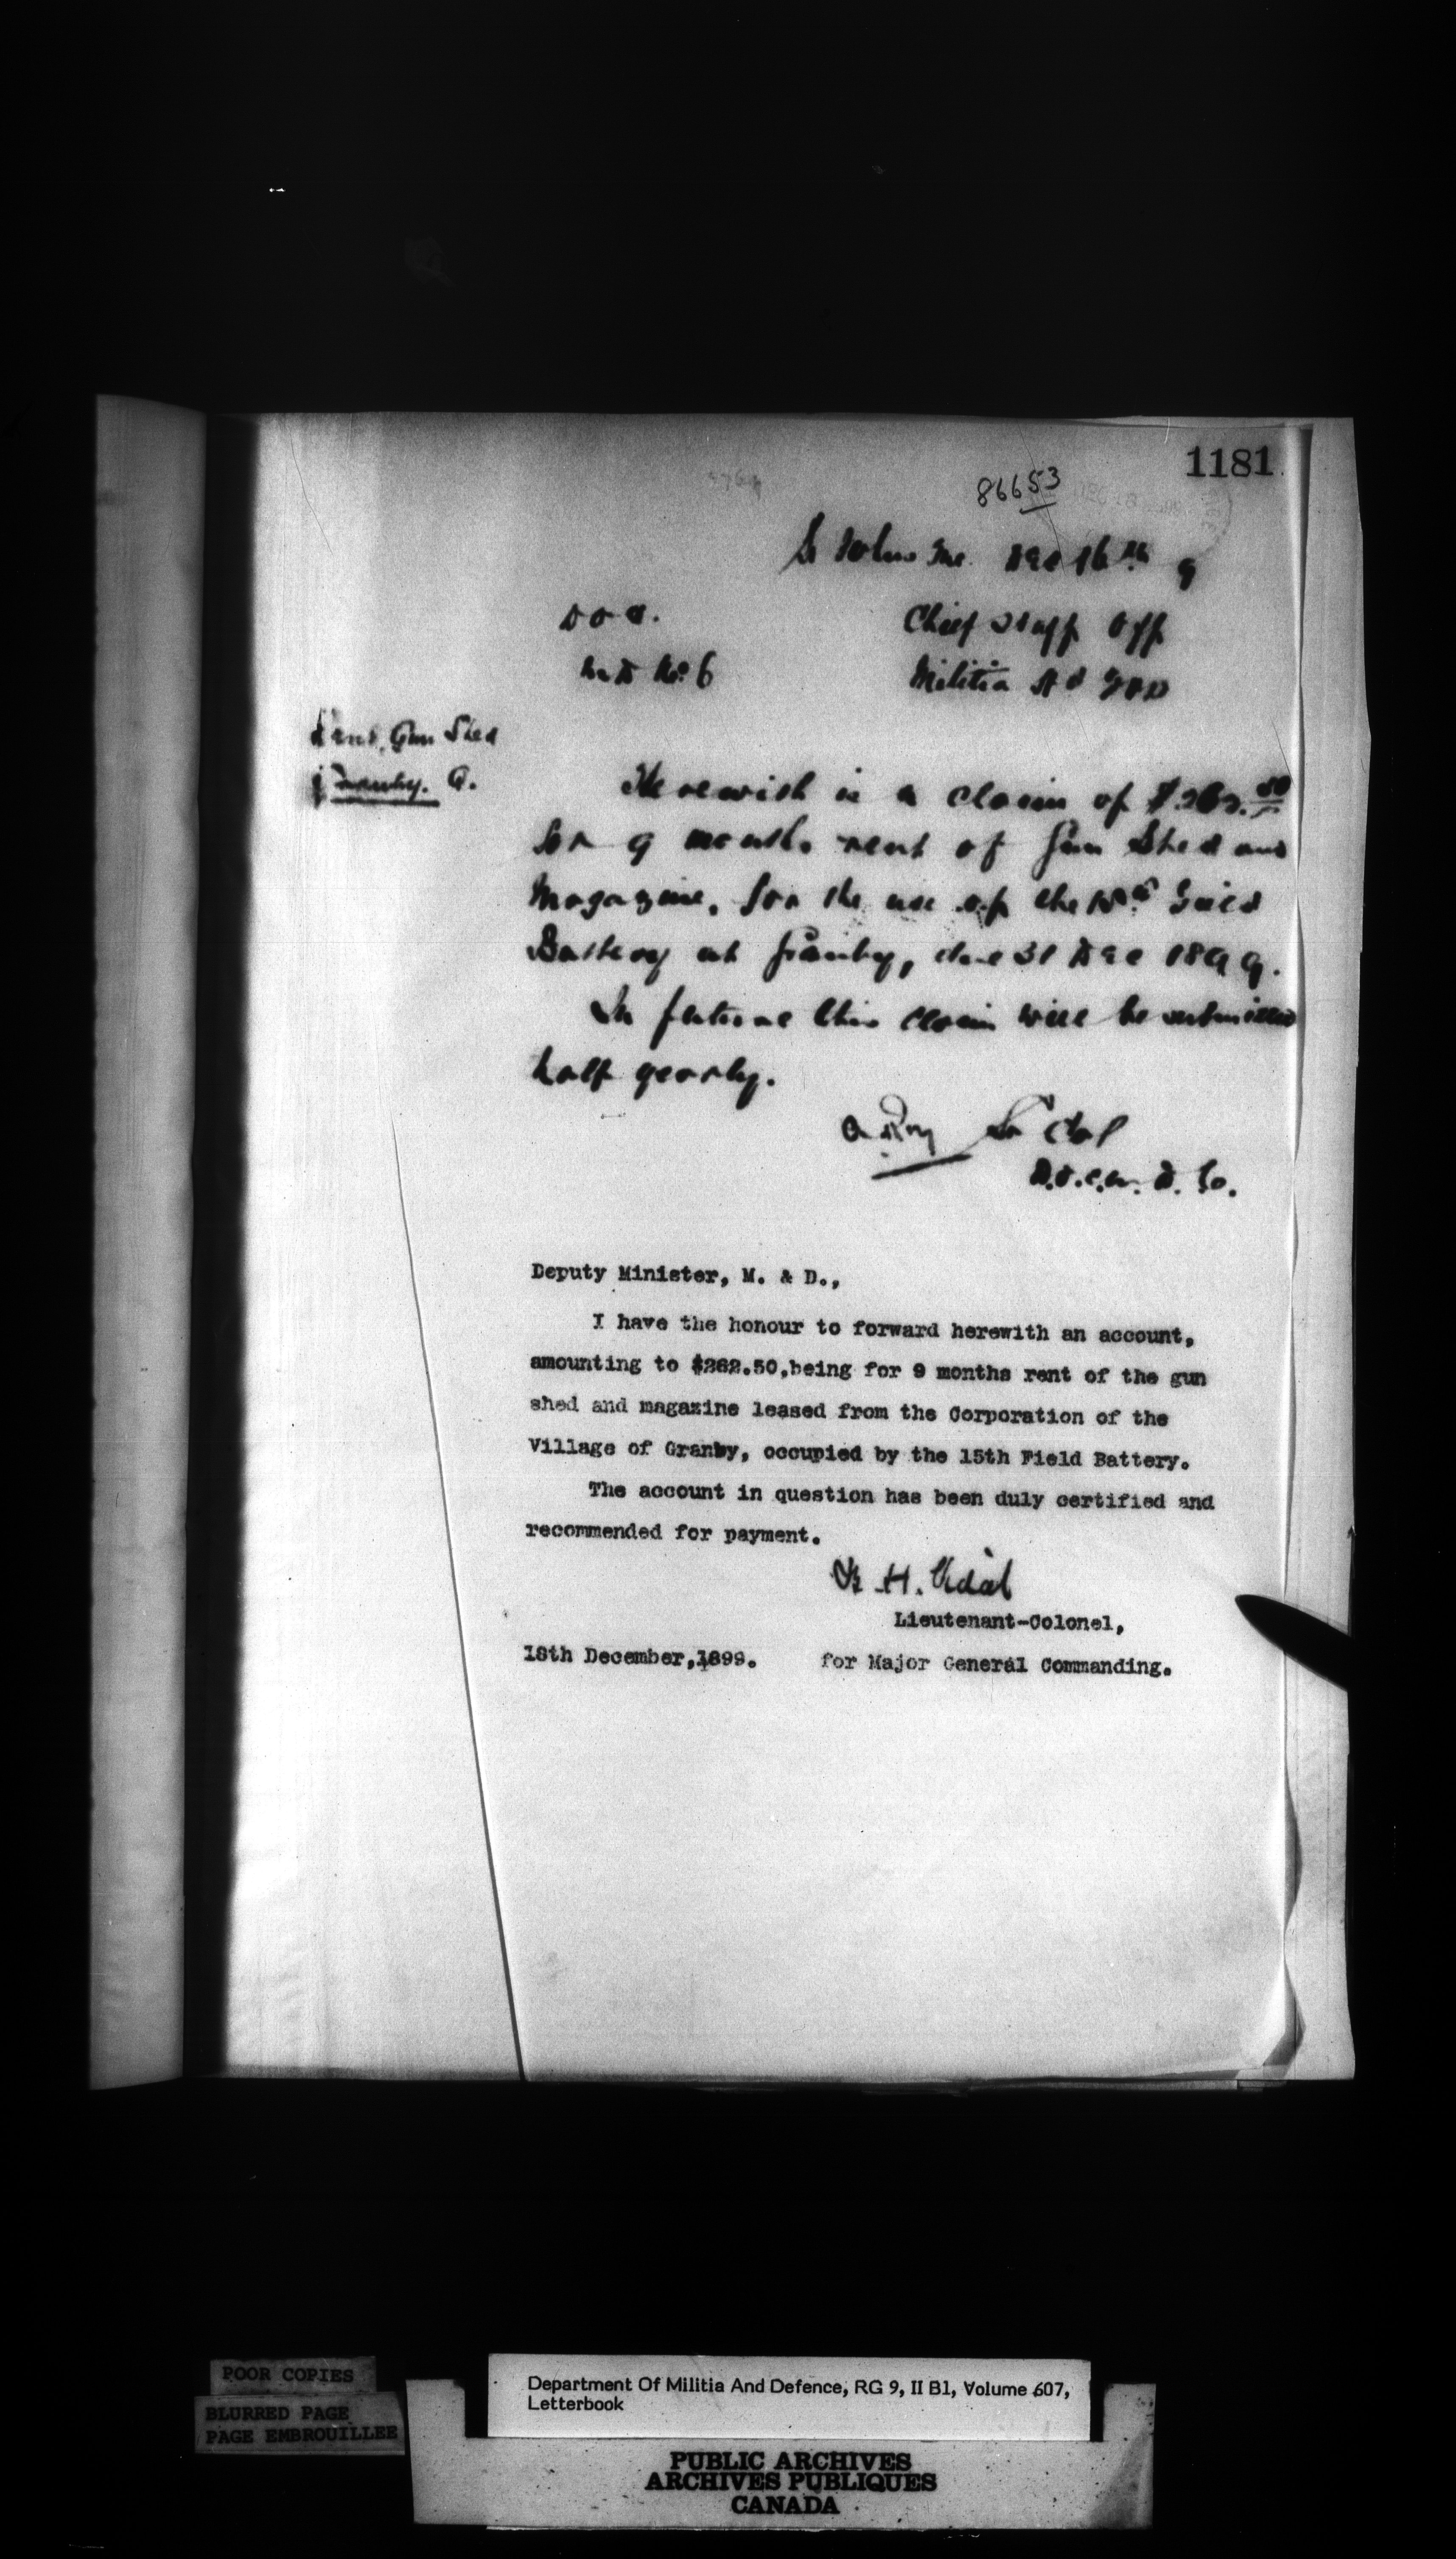 1181
86653
St Johns Que. Dec 16th 9
D O C.
M D No. 6
Chief Staff Off
Militia Hd Qrs
Rent, Gun Shed
Granby. Q.
Herewith is a claim of $262.50
for 9 months rent of Gun Shed and
Magazine, for the use of the 15th Field
Battery at Granby, due 31 Dec 1899.
In future this claim will be submitted
half yearly.
A Roy Lt Col
D.O.C. M. D. 6.
Deputy Minister, M. & D.,
I have the honour to forward herewith an account,
amounting to $262.50,being for 9 months rent of the gun
shed and magazine leased from the Corporation of the
Village of Granby, occupied by the 15th Field Battery.
The account in question has been duly certified and
recommended for payment.
H. Vidal
Lieutenant-Colonel,
18th December,1899. for Major General Commanding.
POOR COPIES
BLURRED PAGE
PAGE EMBROUILLEE
Department Of Militia And Defence, RG 9, II B1, Volume 607,
Letterbook
PUBLIC ARCHIVES
ARCHIVES PUBLIQUES
CANADA